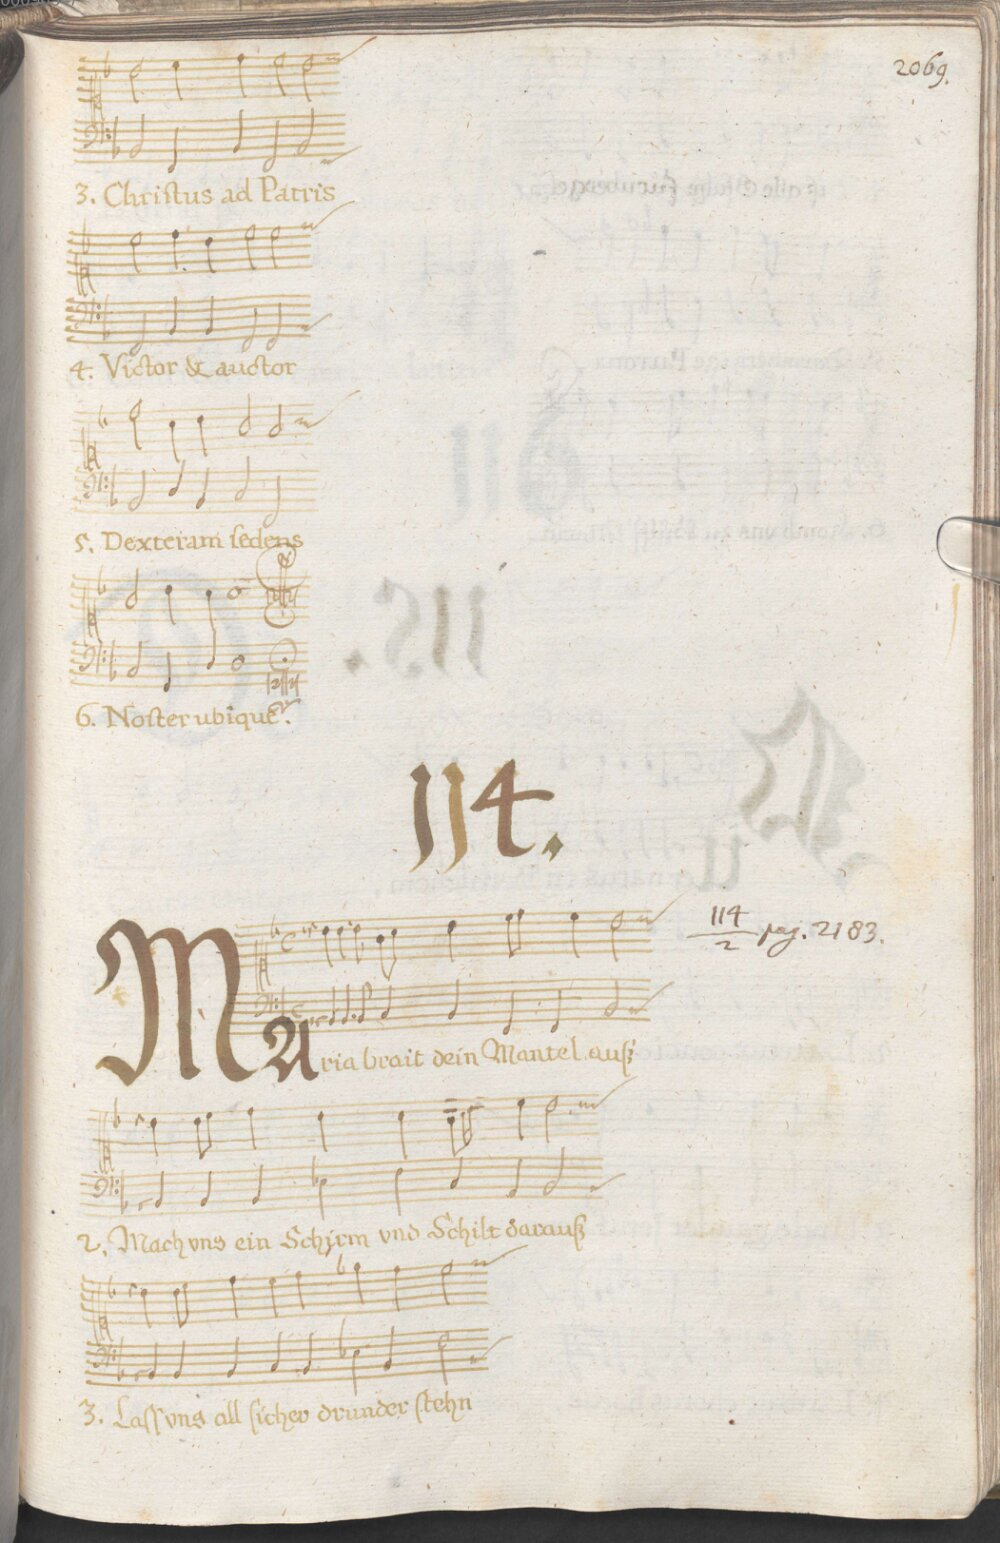 2069.
3. Christus ad Patris
4. Victor & auctor
5. Dexteram sedens
6. Noster ubique.
114.
114/2 pag. 2183.
MAria brait dein Mantel auß
2. Mach vns ein Schirm vnd Schilt darauß
3. Lass vns all sicher drunder stehn